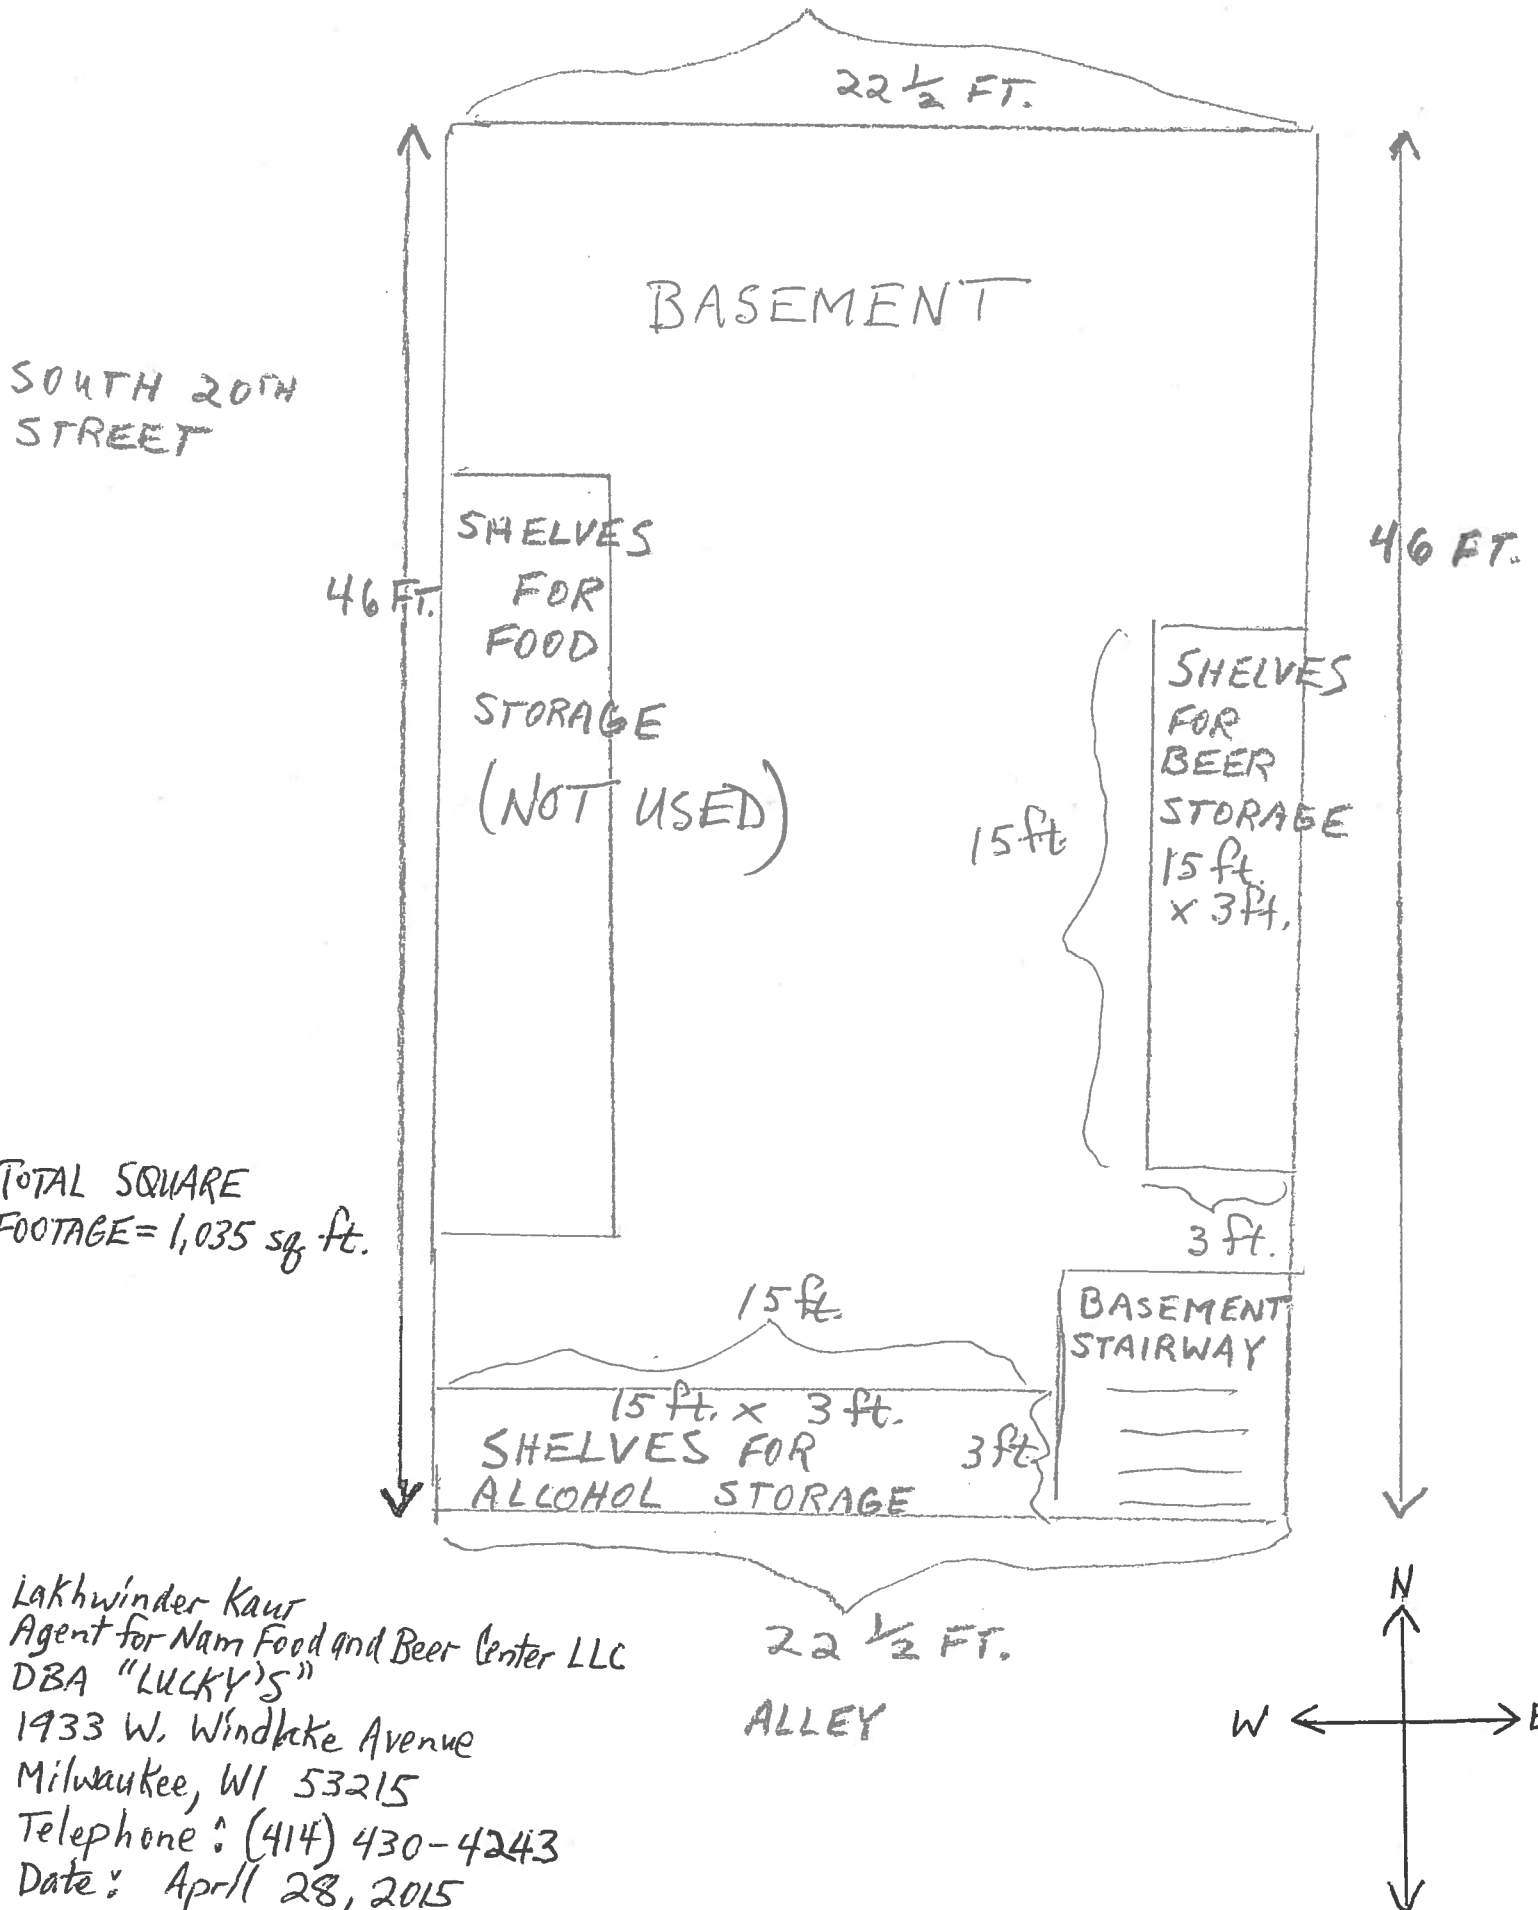 22 1/2 FT.
BASEMENT
SOUTH 20TH
STREET
46 FT.
SHELVES
FOR
FOOD
STORAGE
(NOT USED)
46 FT.
15 ft.
SHELVES
FOR
BEER
STORAGE
15 ft.
x 3 ft.
3 ft.
TOTAL SQUARE
FOOTAGE = 1,035 sq ft.
15 ft.
BASEMENT
STAIRWAY
15 ft. x 3 ft.
SHELVES FOR
ALCOHOL STORAGE
3 ft.
22 1/2 FT.
ALLEY
Lakhwinder Kaur
Agent for Nam Food and Beer Center LLC
DBA "LUCKY'S"
1933 W. Windlake Avenue
Milwaukee, WI 53215
Telephone: (414) 430-4243
Date: April 28, 2015
N
W
E